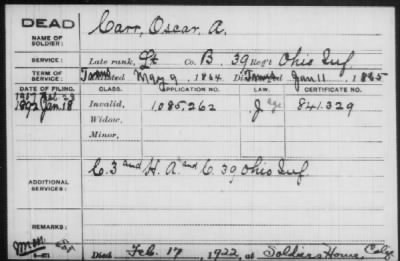 DEAD
NAME OF SOLDIER: Carr, Oscar A.
SERVICE: Late rank, Lt Co. B, 39 Reg't Ohio Inf.
TERM OF SERVICE: Enlisted May 9, 1864 Dis Jan 11, 1865
DATE OF FILING. CLASS. APPLICATION NO. LAW. CERTIFICATE NO.
1892 Jan 18 Invalid, 1085,262 J age 841.329
Widow,
Minor,
ADDITIONAL SERVICES: C. 3 and H. A and C. 39 Ohio Inf.
REMARKS:
Died Feb. 17, 1922, at Soldiers Home,